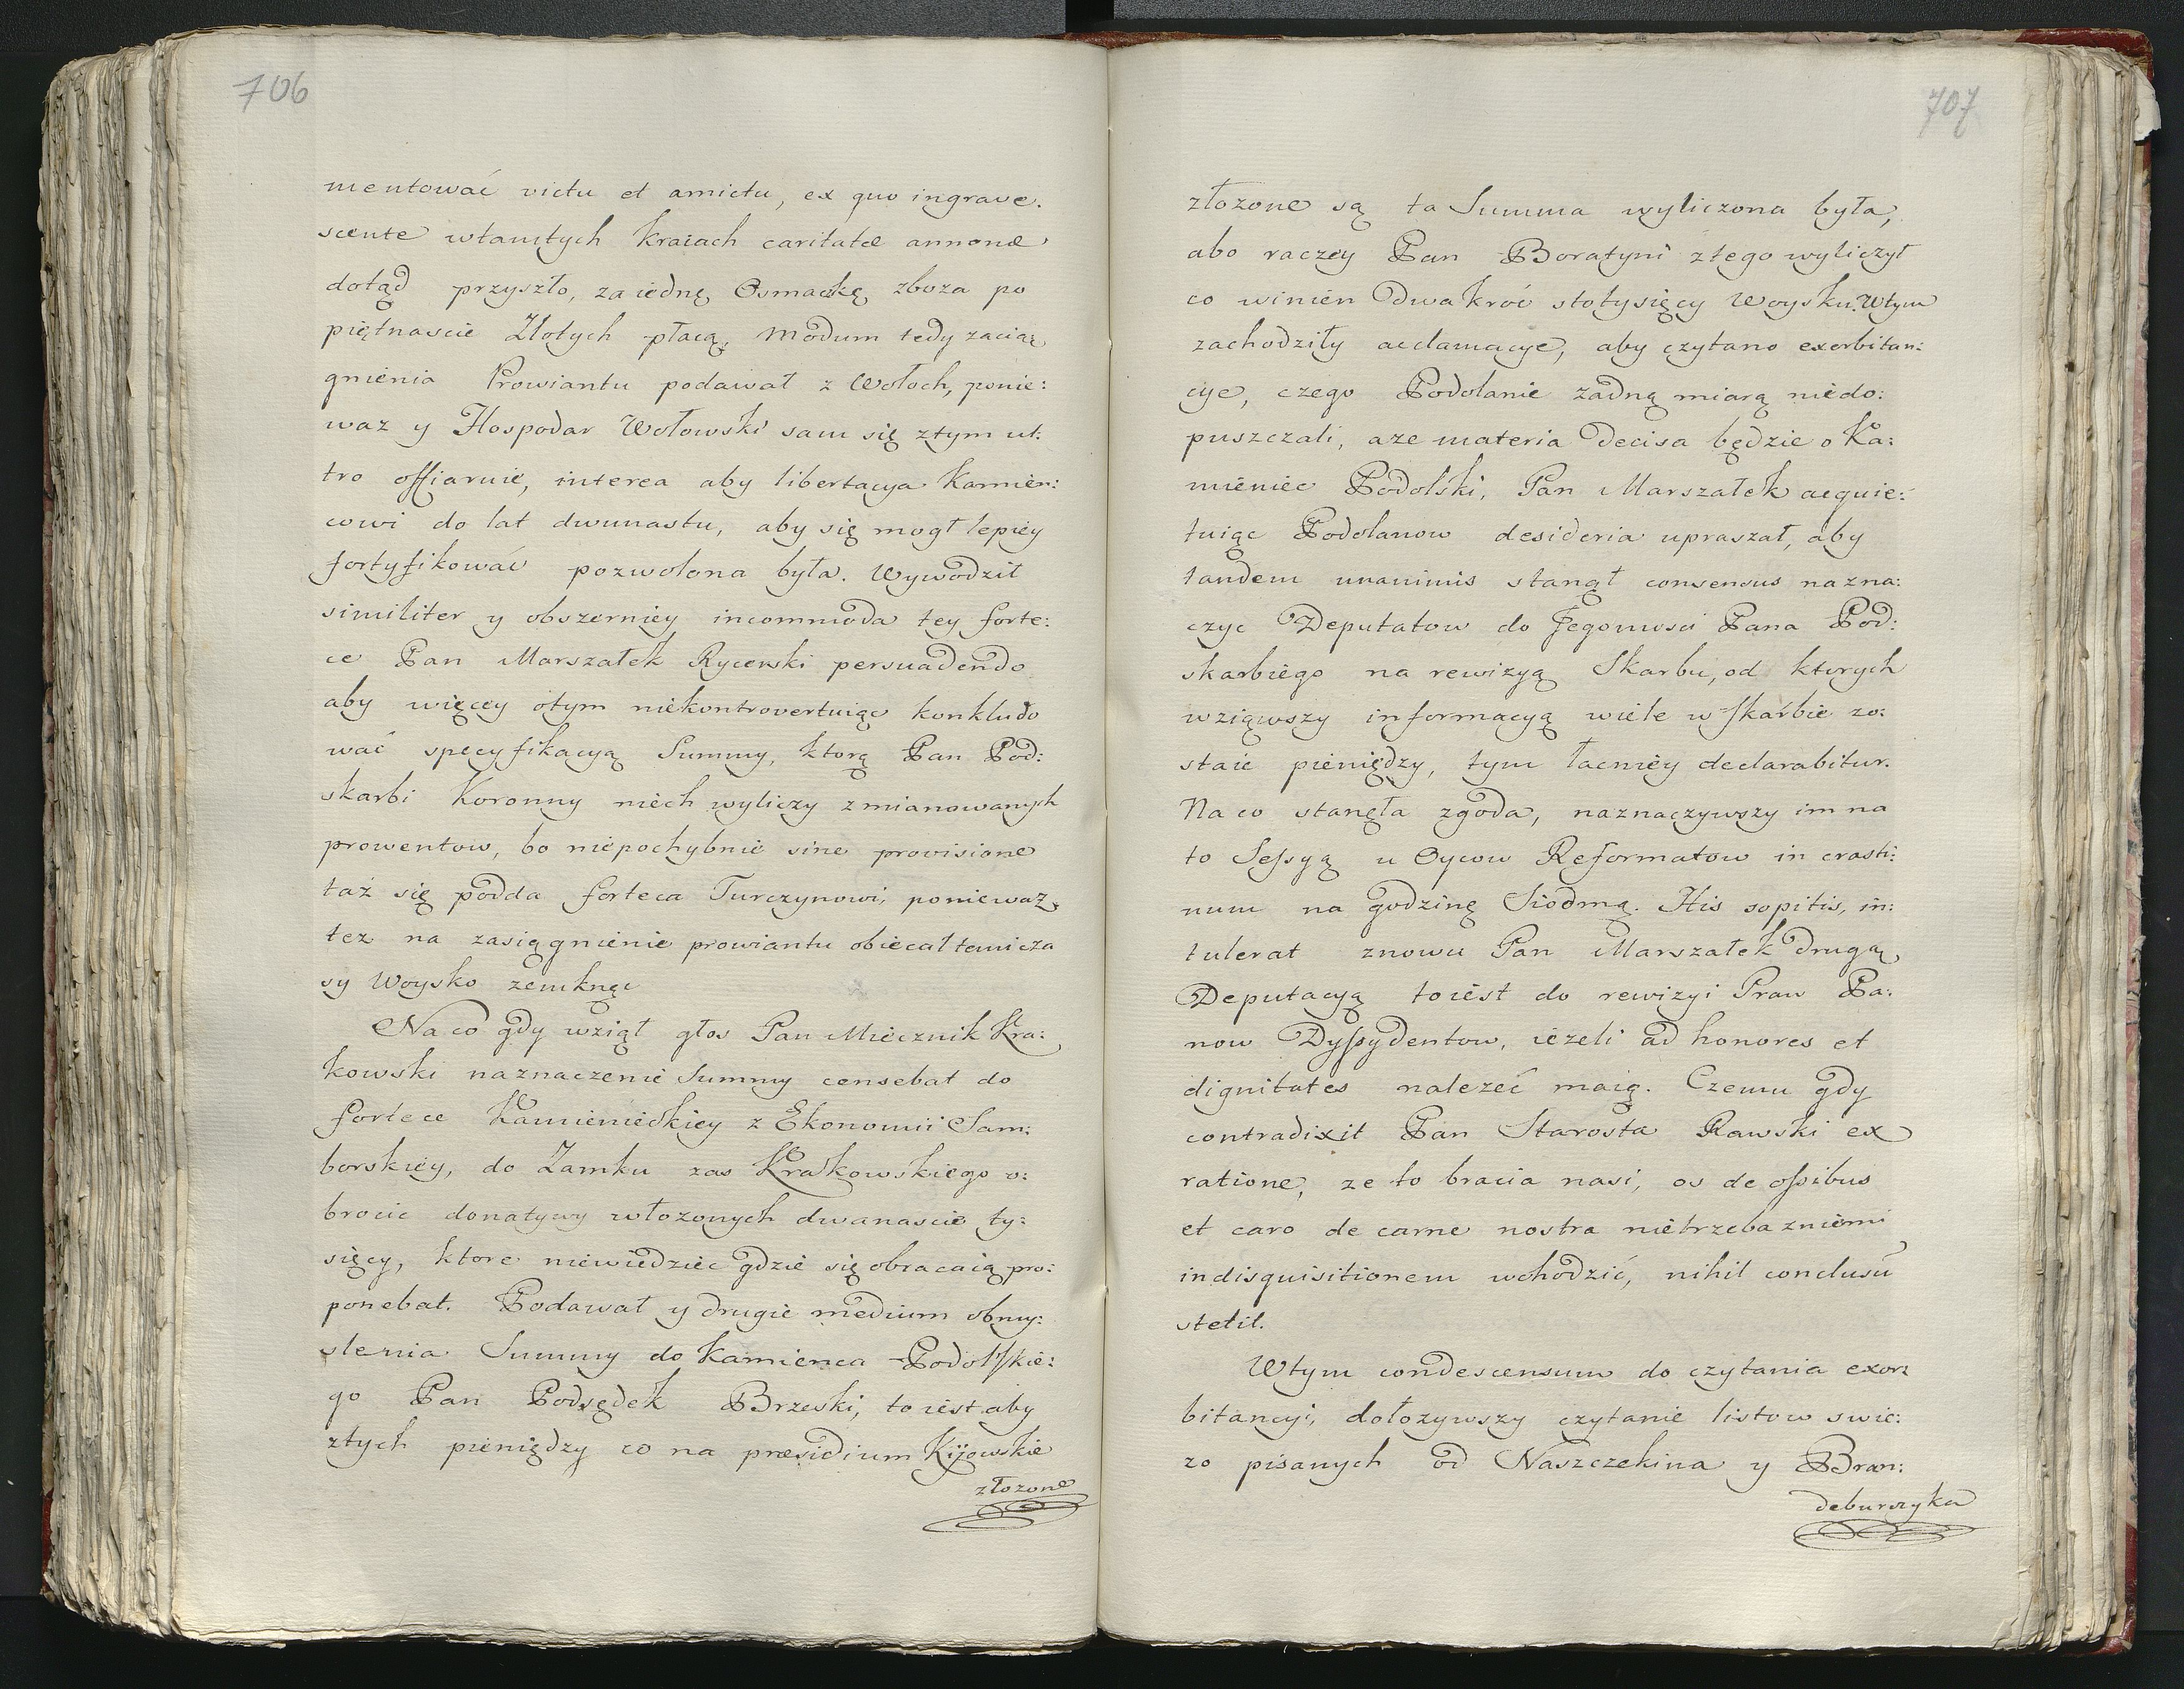 706
mentować victu et amictu, ex quo ingrave.
scente wtamtych kraiach caritate annonæ
dotąd przyszło, za iednę Osmackę zboza po
piętnascie Złotych płacą, modum tedy zacią
gnienia Prowiantu podawał z Wołoch, ponie:
waz y Hospodar Wołowski sam się ztym ul:
tro offiaruie, interea aby libertacya Kamien:
cowi do lat dwunastu, aby się mogł lepiey
fortyfikować pozwolona była. Wywodził
similiter y obszerniey incommoda tey forte:
ce Pan Marszałek Rycerski persuadendo
aby więcey otym niekontrovertuiąc konkludo
wać specyfikacyą Summy, ktorą Pan Pod:
skarbi Koronny niech wyliczy z mianowanych
prowentow, bo niepochybnie sine provisione
taż się podda forteca Turczynowi, poniewaz
tez na zasiągnienie prowiantu obiecał temi cza
sy Woysko zemknąc
Na co gdy wziął głos Pan Miecznik Kra:
kowski naznaczenie Summy censebat do
fortece Kamienieckiey z Ekonomii Sam:
borskiey, do Zamku zas Krakowskiego o:
brocic donatywy włozonych dwanascie ty:
sięcy, ktore niewiedziec gdzie się obracaią pro:
ponebat. Podawał y drugie medium obmy:
slenia Summy do Kamienca Podolskie:
go Pan Podsędek Brzeski, to iest aby
ztych pieniędzy co na præsidium Kijowskie
złozone
707
złozone są ta Summa wyliczona była,
abo raczey Pan Boratyni ztego wyliczył
co winien Dwakroć stotysięcy Woysku. Wtym
zachodziły acclamacye, aby czytano exorbitan:
cye, czego Podolanie zadną miarą niedo:
puszczali, aze materia decisa będzie o Ka:
mieniec Podolski, Pan Marszałek acquie:
tuiąc Podolanow desideria upraszał, aby
tandem unanimis stanął consensus nazna:
czyc Deputatow do Jegomosci Pana Pod:
skarbiego na rewizyą Skarbu, od ktorych
wziąwszy informacyą wiele w skarbie zo:
staie pieniędzy, tym łacniey declarabitur.
Na co stanęła zgoda, naznaczywszy im na
to Sessyą u Oycow Reformatow in crasti:
num na godzinę Siodmą. His sopitis, in:
tulerat znowu Pan Marszałek drugą
Deputacyą to iest do rewizyi Praw Pa:
now Dyssydentow, iezeli ad honores et
dignitates nalezeć maią. Czemu gdy
contradixit Pan Starosta Rawski ex
ratione, ze to bracia nasi, os de ossibus
et caro de carne nostra nietrzeba zniemi
indisquisitionem wchodzić, nihil conclusū
stetit.
Wtym condescensum do czytania exor:
bitancyi, dołozywszy czytanie listow swie:
zo pisanych od Naszczekina y Bran:
deburczyka